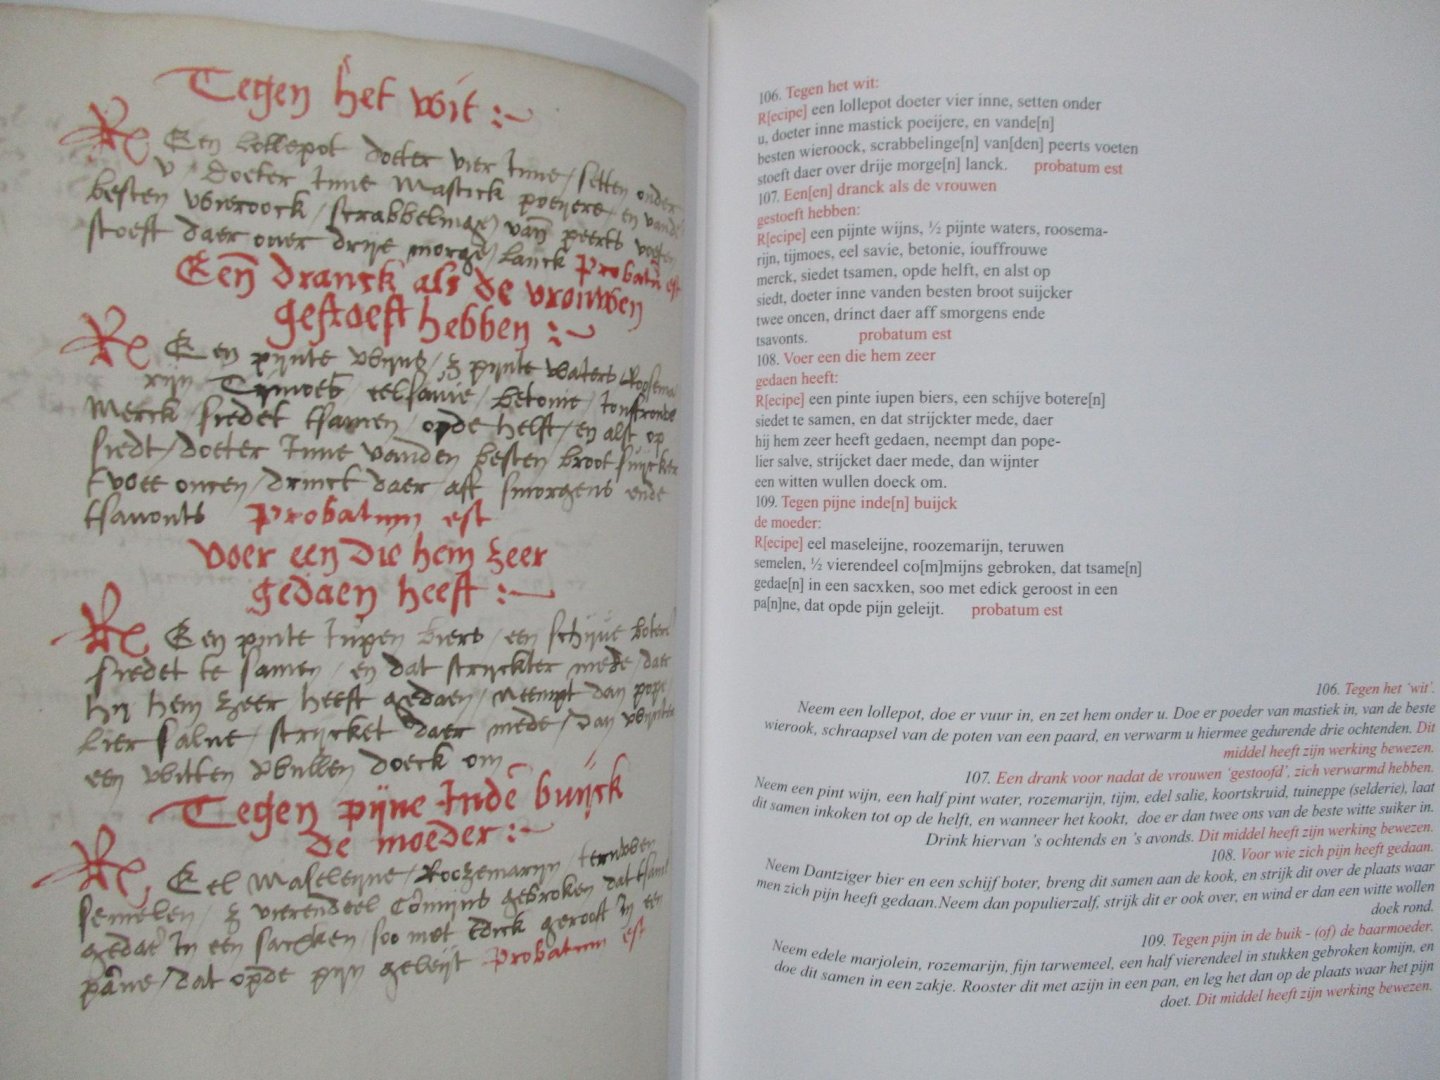 Tegen het wit :~
Rx Een lollepot doeter vier inne / setten onder
v / doeter inne Mastick poeijere / en vande
besten wieroock / scrabbelingen van peerts voeten
stoeft daer over drije morge / lanck Probatu est
Een dranck als de vrouwen
gestoeft hebben :~
Rx Een pijnte wijns / ½ pijnte waters Roosema
rijn Tijmoes eelsavie / betonie / iouffrouwe
Merck / siedet tsamen / opde helft / en alst op
siedt / doeter inne vanden besten broot suijcker
twee oncen / drinct daer aff smorgens ende
tsavonts Probatum est
Voer een die hem zeer
gedaen heeft :~
Rx Een pinte iupen biers / een schijve botere
siedet te samen / en dat strijckter mede / daer
hij hem zeer heeft gedaen / Neempt dan pope
lier salve / strijcket daer mede / dan wijnter
een witten wullen doeck om
Tegen pijne inde buijck
de moeder :~
Rx Eel Maseleijne / Roozemarijn / teruwen
semelen / ½ vierendeel Comijns gebroken dat tsame
gedae in een sacxken / soo met Edick geroost in een
pane / dat opde pijn geleijt Probatum est
106. Tegen het wit:
R[ecipe] een lollepot doeter vier inne, setten onder
u, doeter inne mastick poeijere, en vande[n]
besten wieroock, scrabbelinge[n] van[den] peerts voeten
stoeft daer over drije morge[n] lanck. probatum est
107. Een[en] dranck als de vrouwen
gestoeft hebben:
R[ecipe] een pijnte wijns, ½ pijnte waters, roosema-
rijn, tijmoes, eel savie, betonie, iouffrouwe
merck, siedet tsamen, opde helft, en alst op
siedt, doeter inne vanden besten broot suijcker
twee oncen, drinct daer aff smorgens ende
tsavonts. probatum est
108. Voer een die hem zeer
gedaen heeft:
R[ecipe] een pinte iupen biers, een schijve botere[n]
siedet te samen, en dat strijckter mede, daer
hij hem zeer heeft gedaen, neempt dan pope-
lier salve, strijcket daer mede, dan wijnter
een witten wullen doeck om.
109. Tegen pijne inde[n] buijck
de moeder:
R[ecipe] eel maseleijne, roozemarijn, teruwen
semelen, ½ vierendeel co[m]mijns gebroken, dat tsame[n]
gedae[n] in een sacxken, soo met edick geroost in een
pa[n]ne, dat opde pijn geleijt. probatum est
106. Tegen het 'wit'.
Neem een lollepot, doe er vuur in, en zet hem onder u. Doe er poeder van mastiek in, van de beste
wierook, schraapsel van de poten van een paard, en verwarm u hiermee gedurende drie ochtenden. Dit
middel heeft zijn werking bewezen.
107. Een drank voor nadat de vrouwen 'gestoofd', zich verwarmd hebben.
Neem een pint wijn, een half pint water, rozemarijn, tijm, edel salie, koortskruid, tuineppe (selderie), laat
dit samen inkoken tot op de helft, en wanneer het kookt, doe er dan twee ons van de beste witte suiker in.
Drink hiervan 's ochtends en 's avonds. Dit middel heeft zijn werking bewezen.
108. Voor wie zich pijn heeft gedaan.
Neem Dantziger bier en een schijf boter, breng dit samen aan de kook, en strijk dit over de plaats waar
men zich pijn heeft gedaan.Neem dan populierzalf, strijk dit er ook over, en wind er dan een witte wollen
doek rond.
109. Tegen pijn in de buik - (of) de baarmoeder.
Neem edele marjolein, rozemarijn, fijn tarwemeel, een half vierendeel in stukken gebroken komijn, en
doe dit samen in een zakje. Rooster dit met azijn in een pan, en leg het dan op de plaats waar het pijn
doet. Dit middel heeft zijn werking bewezen.